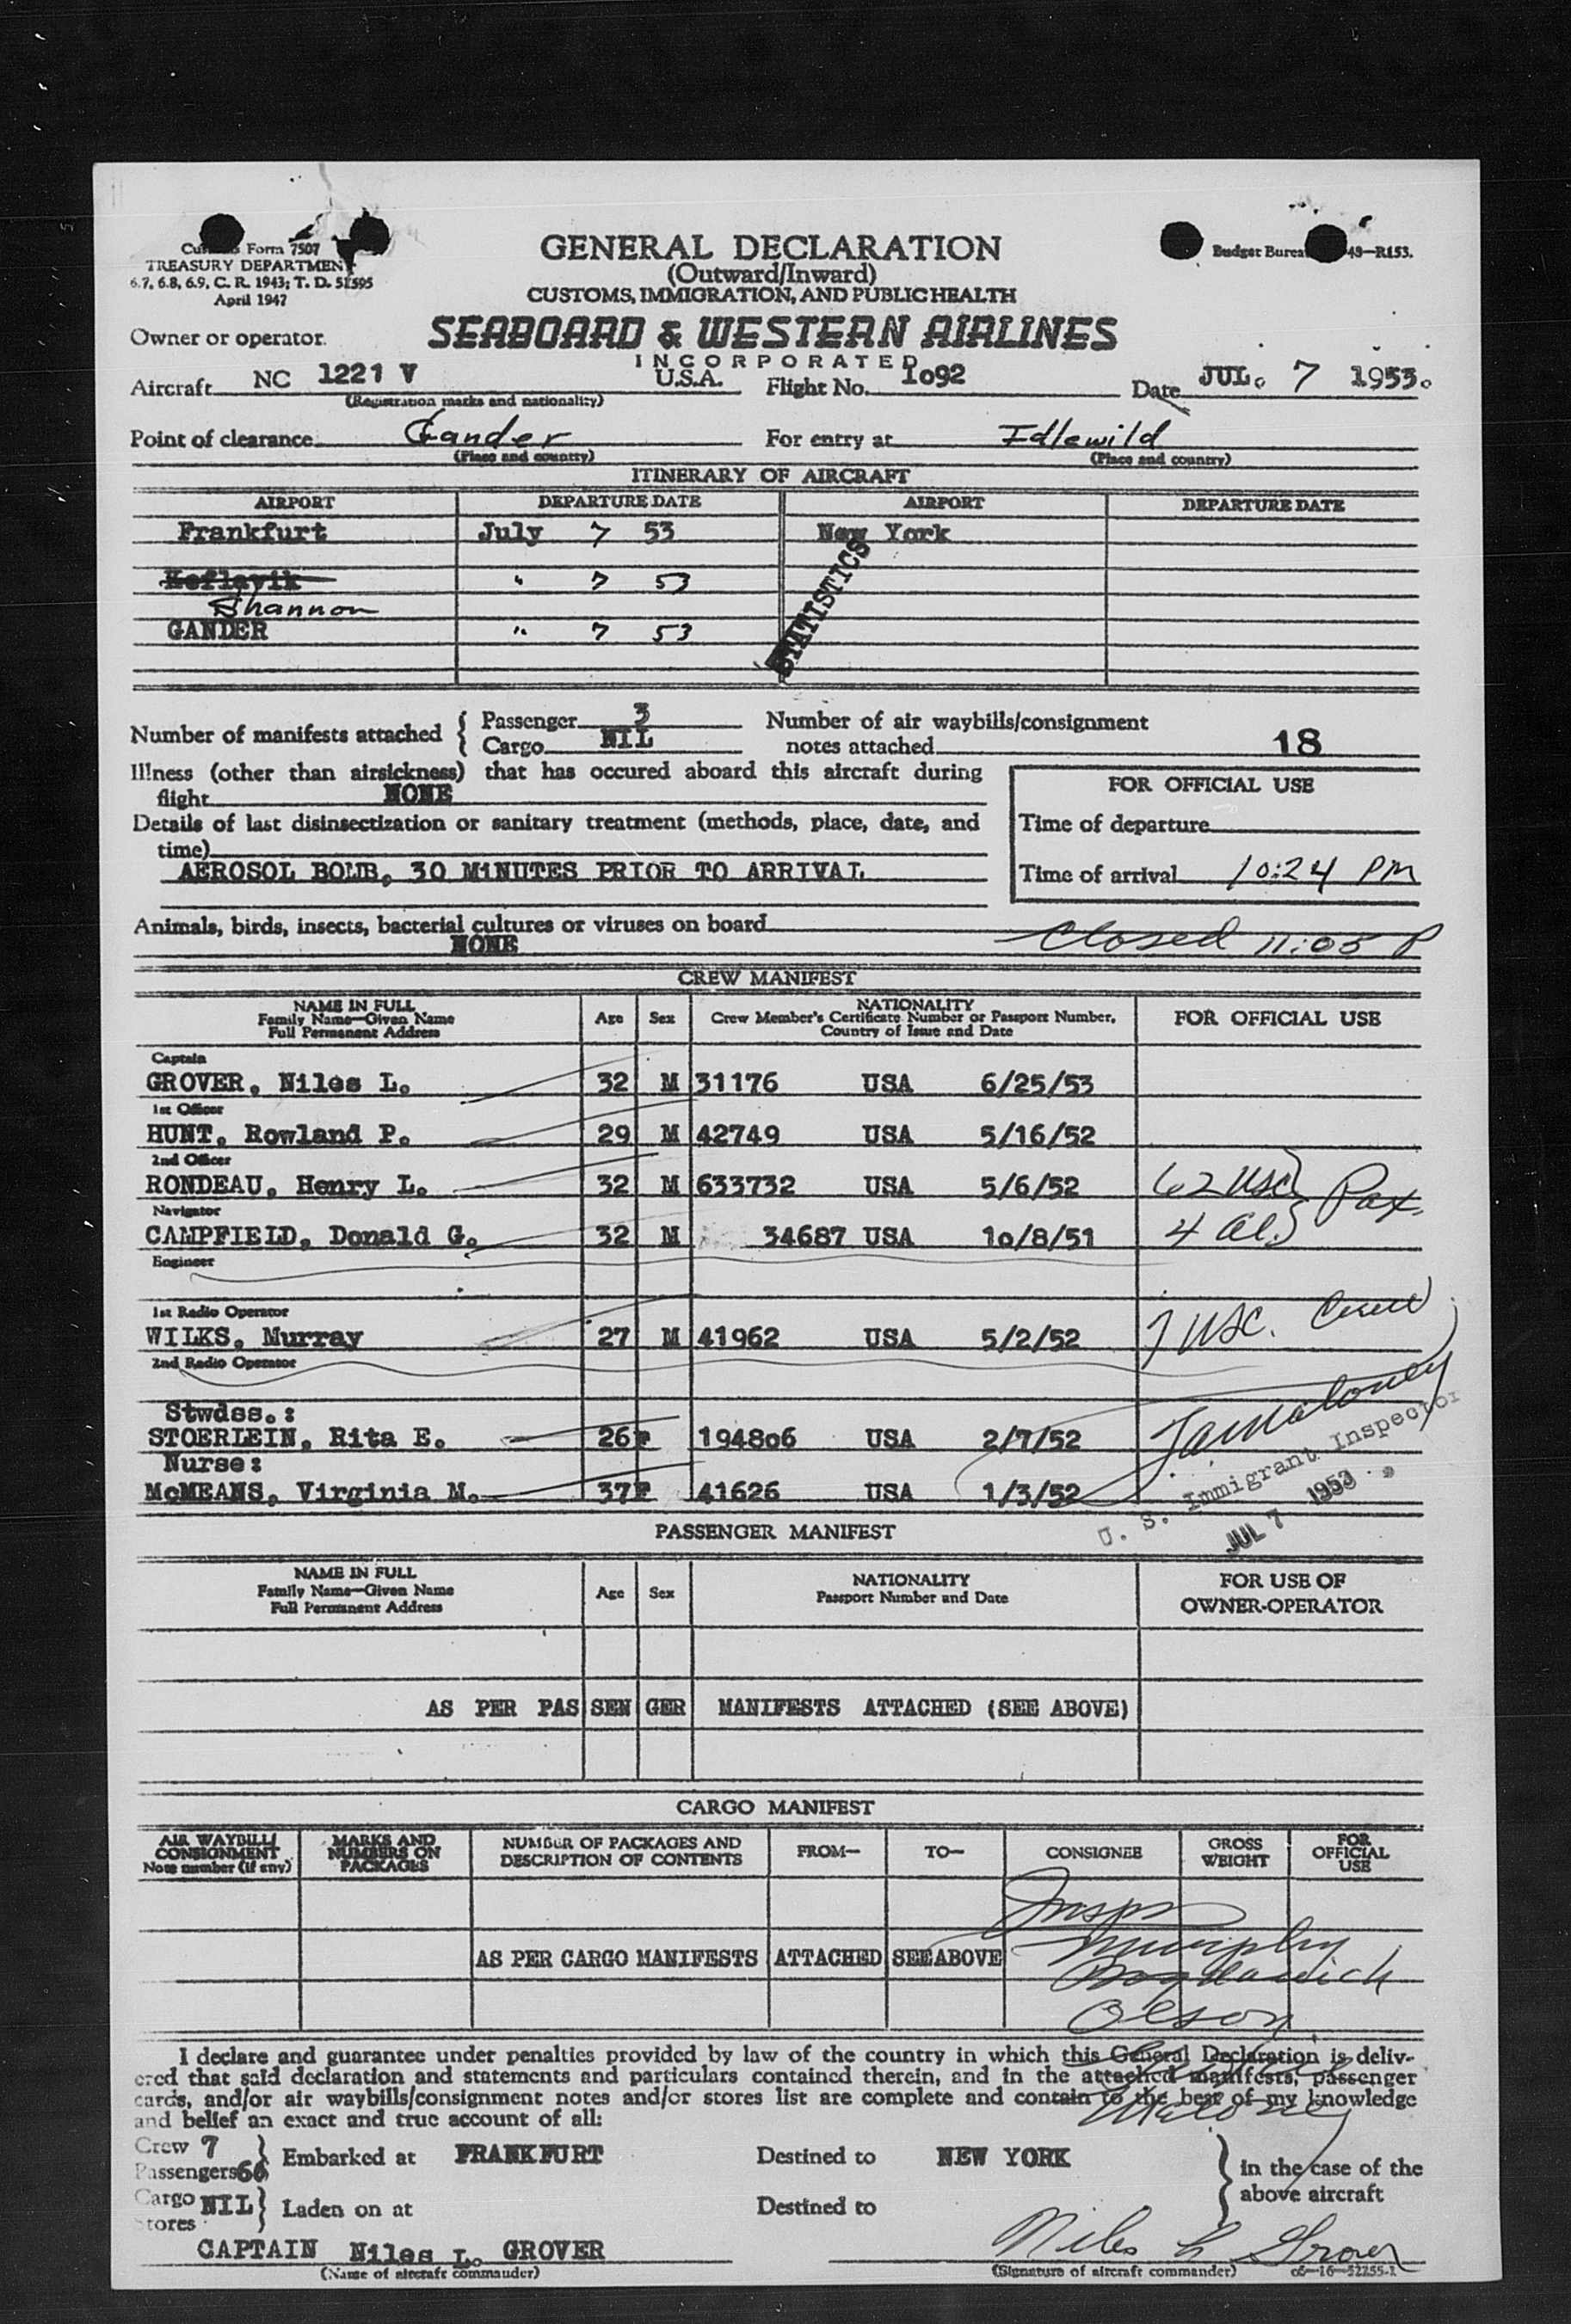 Form 7507
TREASURY DEPARTMENT
6.7, 6.8, 6.9, C. R. 1943; T. D. 51595
April 1947
GENERAL DECLARATION
(Outward/Inward)
CUSTOMS, IMMIGRATION, AND PUBLIC HEALTH
Budget 48—R153.
Owner or operator
SEABOARD & WESTERN AIRLINES
INCORPORATED
Aircraft NC 1221 V U.S.A. Flight No. 1o92 Date JUL. 7 1953.
(Registration marks and nationality)
Point of clearance Gander For entry at Idlewild
(Place and country) (Place and country)
ITINERARY OF AIRCRAFT
AIRPORT DEPARTURE DATE AIRPORT DEPARTURE DATE
Frankfurt July 7 53 New York
Keflavik " 7 53
Shannon
GANDER " 7 53
STATISTICS
Number of manifests attached { Passenger 3 Number of air waybills/consignment
Cargo NIL notes attached 18
Illness (other than airsickness) that has occured aboard this aircraft during
flight NONE
FOR OFFICIAL USE
Details of last disinsectization or sanitary treatment (methods, place, date, and
time)
Time of departure
AEROSOL BOMB, 30 M1NUTES PRIOR TO ARRIVAL
Time of arrival 10:24 PM
Animals, birds, insects, bacterial cultures or viruses on board
NONE
Closed 11:05 P
CREW MANIFEST
NAME IN FULL
Family Name—Given Name
Full Permanent Address
Age Sex
NATIONALITY
Crew Member's Certificate Number or Passport Number,
Country of Issue and Date
FOR OFFICIAL USE
Captain
GROVER, Niles L. 32 M 31176 USA 6/25/53
1st Officer
HUNT, Rowland P. 29 M 42749 USA 5/16/52
2nd Officer
RONDEAU, Henry L. 32 M 633732 USA 5/6/52 62 USC} Pax.
Navigator
CAMPFIELD, Donald G. 32 M 34687 USA 1o/8/51 4 Al.}
Engineer
1st Radio Operator
WILKS, Murray 27 M 41962 USA 5/2/52 7 USC. Crew
2nd Radio Operator
Stwdss.:
STOERLEIN, Rita E. 26 F 1948o6 USA 2/7/52
Nurse:
McMEANS, Virginia M. 37 F 41626 USA 1/3/52
U. S. Immigrant Inspector
JUL 7 1953
PASSENGER MANIFEST
NAME IN FULL
Family Name—Given Name
Full Permanent Address
Age Sex
NATIONALITY
Passport Number and Date
FOR USE OF
OWNER-OPERATOR
AS PER PAS SEN GER MANIFESTS ATTACHED (SEE ABOVE)
CARGO MANIFEST
AIR WAYBILL/
CONSIGNMENT
Note number (if any)
MARKS AND
NUMBERS ON
PACKAGES
NUMBER OF PACKAGES AND
DESCRIPTION OF CONTENTS
FROM— TO— CONSIGNEE
GROSS
WEIGHT
FOR
OFFICIAL
USE
Insps
Murphy
AS PER CARGO MANIFESTS ATTACHED SEE ABOVE
Olson
I declare and guarantee under penalties provided by law of the country in which this General Declaration is deliv-
ered that said declaration and statements and particulars contained therein, and in the attached manifests, passenger
cards, and/or air waybills/consignment notes and/or stores list are complete and contain to the best of my knowledge
and belief an exact and true account of all:
Crew 7
Passengers 66 } Embarked at FRANKFURT Destined to NEW YORK } in the case of the
above aircraft
Cargo NIL } Laden on at Destined to
Stores
CAPTAIN Niles L. GROVER Niles L Grover
(Name of aircraft commander) (Signature of aircraft commander) c6—16—52255-1